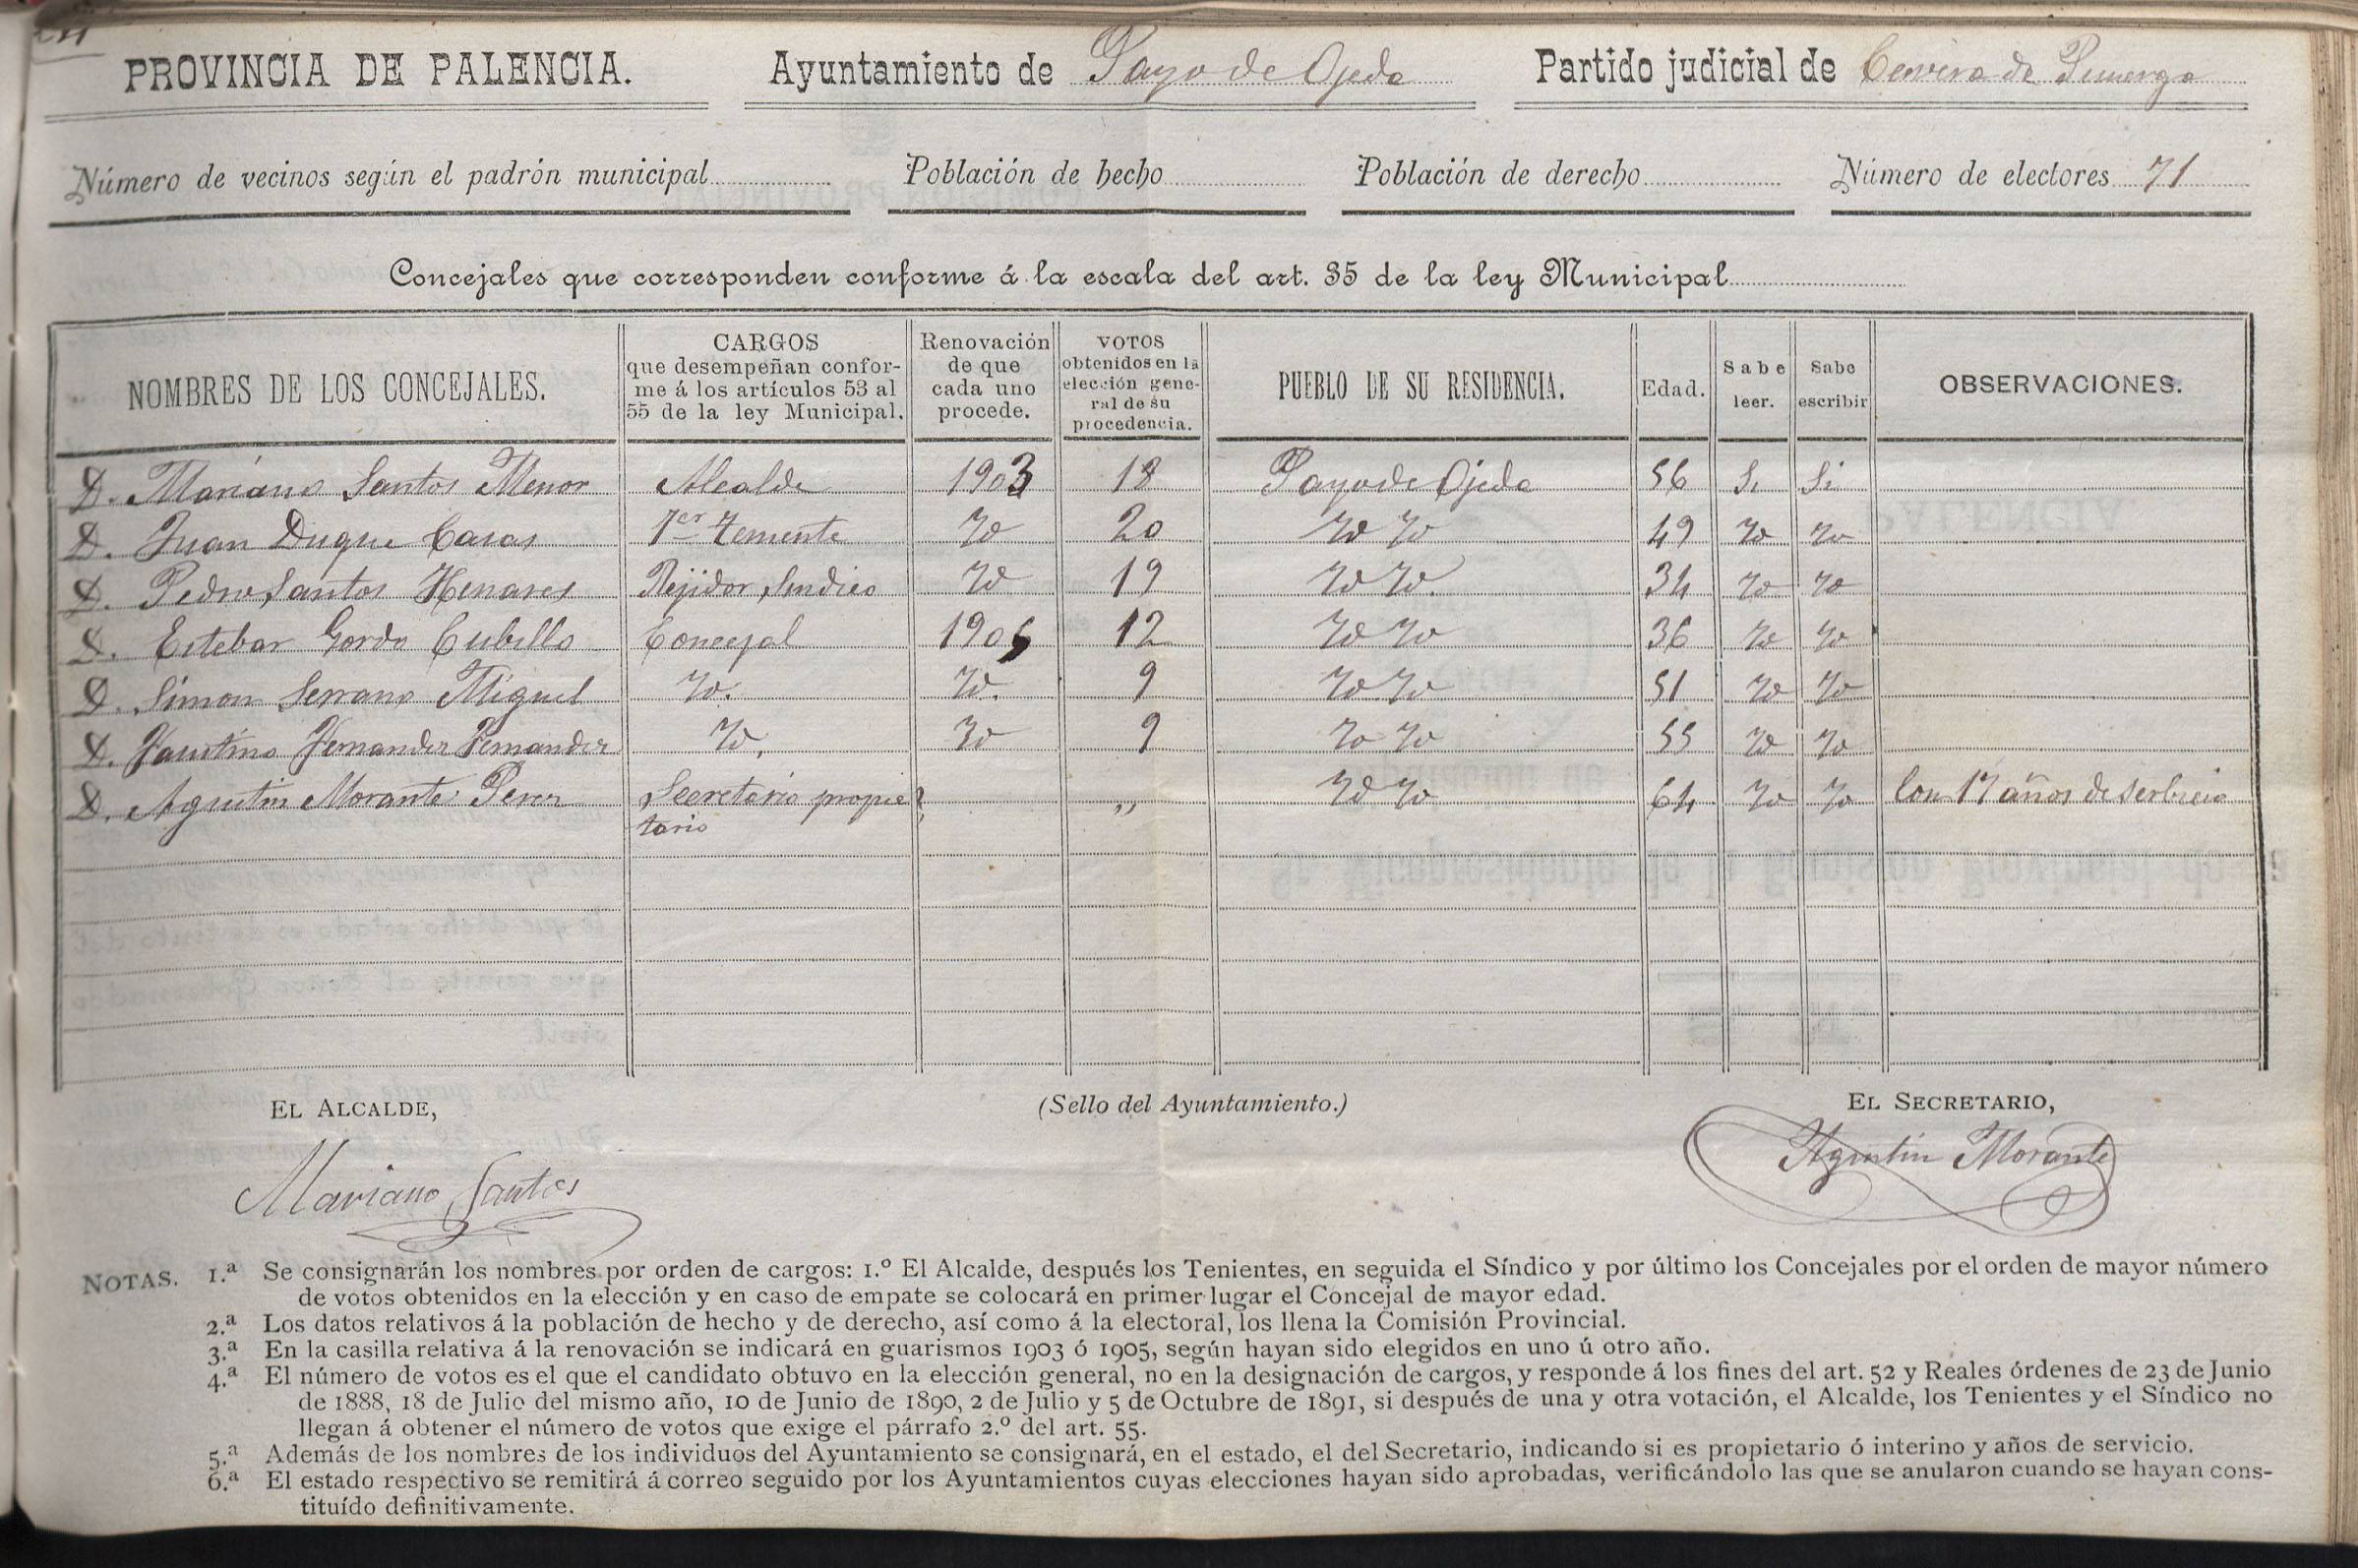 PROVINCIA DE PALENCIA. Ayuntamiento de Payo de Ojeda Partido judicial de Cervera de Pisuerga
Número de vecinos según el padrón municipal Población de hecho Población de derecho Número de electores 71
Concejales que corresponden conforme á la escala del art. 35 de la ley Municipal
NOMBRES DE LOS CONCEJALES. CARGOS que desempeñan confor- me á los artículos 53 al 55 de la ley Municipal. Renovación de que cada uno procede. VOTOS obtenidos en la elección gene- ral de su procedencia. PUEBLO DE SU RESIDENCIA. Edad. Sabe leer. Sabe escribir OBSERVACIONES.
D. Mariano Santos Menor Alcalde 1903 18 Payo de Ojeda 56 Si Si
D. Juan Duque Casas 1er Teniente Yd 20 Yd Yd 49 Yd Yd
D. Pedro Santos Henares Rejidor Sindico Yd 19 Yd Yd. 34 Yd Yd
D. Esteban Gordo Cubillo Concejal 1905 12 Yd Yd 36 Yd Yd
D. Simon Serrano Miguel Yd. Yd. 9 Yd Yd 51 Yd Yd
D. Faustino Fernandez Fernandez Yd. Yd 9 Yd Yd 55 Yd Yd
D. Agustin Morante Perez Secretario propie tario „ Yd Yd 64 Yd Yd Con 17 años de serbicio
EL ALCALDE, (Sello del Ayuntamiento.) EL SECRETARIO,
Mariano Santos Agustin Morante
NOTAS. 1.ª Se consignarán los nombres por orden de cargos: 1.º El Alcalde, después los Tenientes, en seguida el Síndico y por último los Concejales por el orden de mayor número
de votos obtenidos en la elección y en caso de empate se colocará en primer lugar el Concejal de mayor edad.
2.ª Los datos relativos á la población de hecho y de derecho, así como á la electoral, los llena la Comisión Provincial.
3.ª En la casilla relativa á la renovación se indicará en guarismos 1903 ó 1905, según hayan sido elegidos en uno ú otro año.
4.ª El número de votos es el que el candidato obtuvo en la elección general, no en la designación de cargos, y responde á los fines del art. 52 y Reales órdenes de 23 de Junio
de 1888, 18 de Julio del mismo año, 10 de Junio de 1890, 2 de Julio y 5 de Octubre de 1891, si después de una y otra votación, el Alcalde, los Tenientes y el Síndico no
llegan á obtener el número de votos que exige el párrafo 2.º del art. 55.
5.ª Además de los nombres de los individuos del Ayuntamiento se consignará, en el estado, el del Secretario, indicando si es propietario ó interino y años de servicio.
6.ª El estado respectivo se remitirá á correo seguido por los Ayuntamientos cuyas elecciones hayan sido aprobadas, verificándolo las que se anularon cuando se hayan cons-
tituído definitivamente.